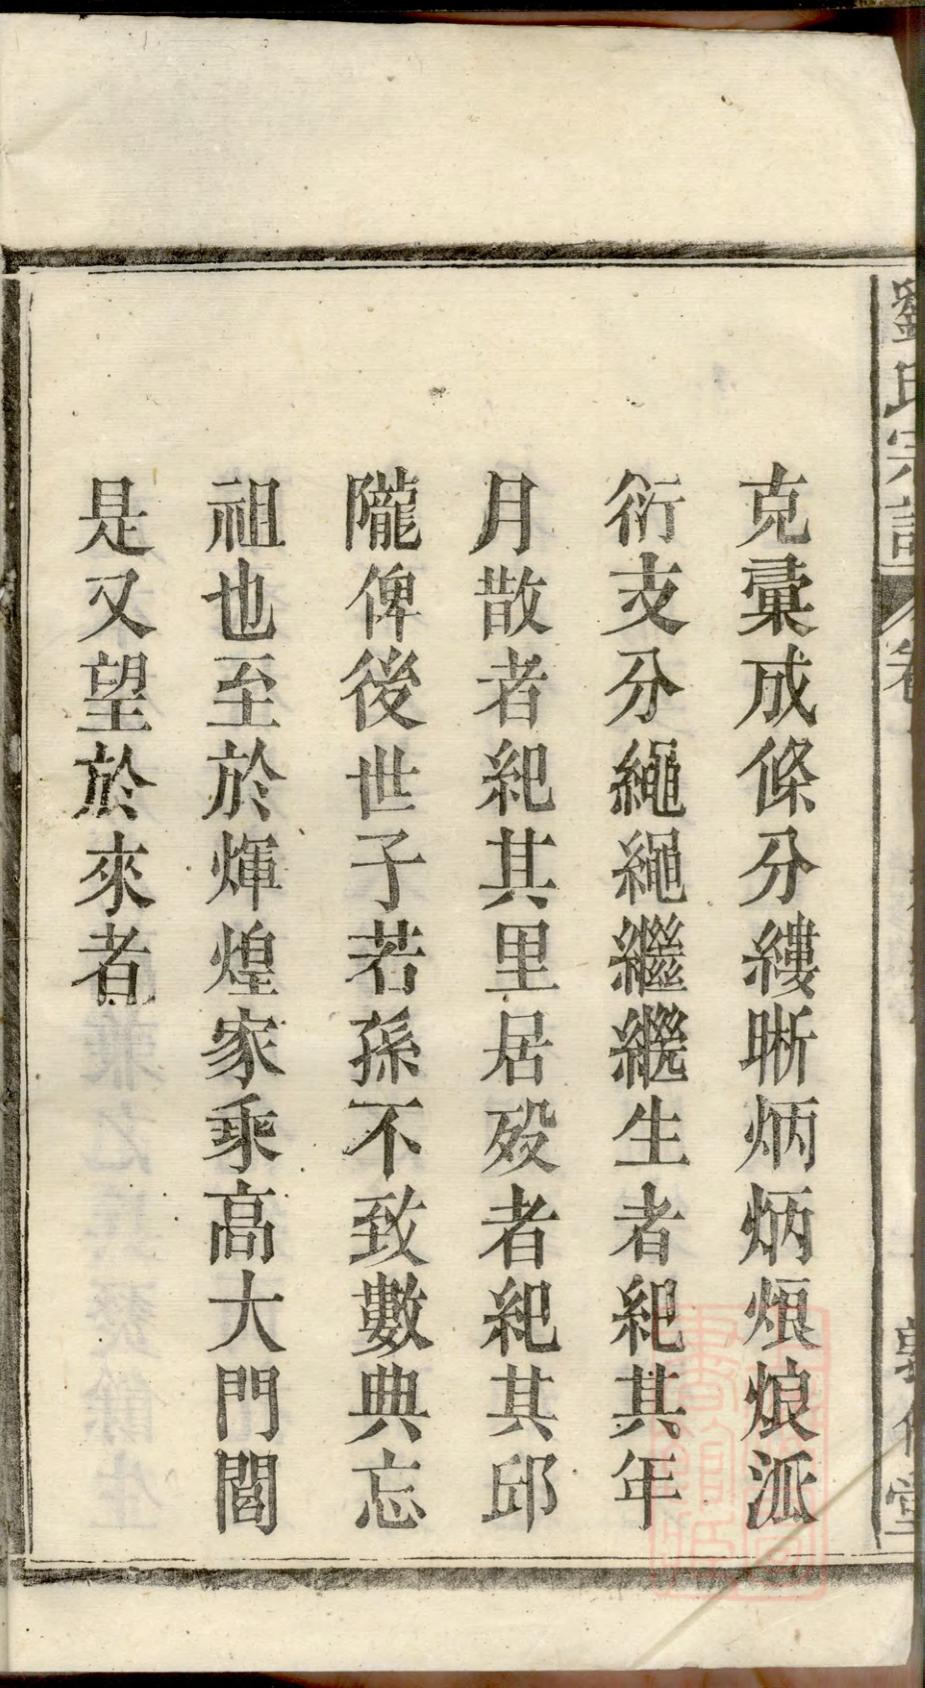 劉氏宗譜
卷
敦倫堂
克彙成條分縷晰炳炳烺烺派
衍支分繩繩繼繼生者紀其年
月散者紀其里居殁者紀其邱
隴俾後世子若孫不致數典忘
祖也至於煇煌家乘高大門閭
是又望於來者